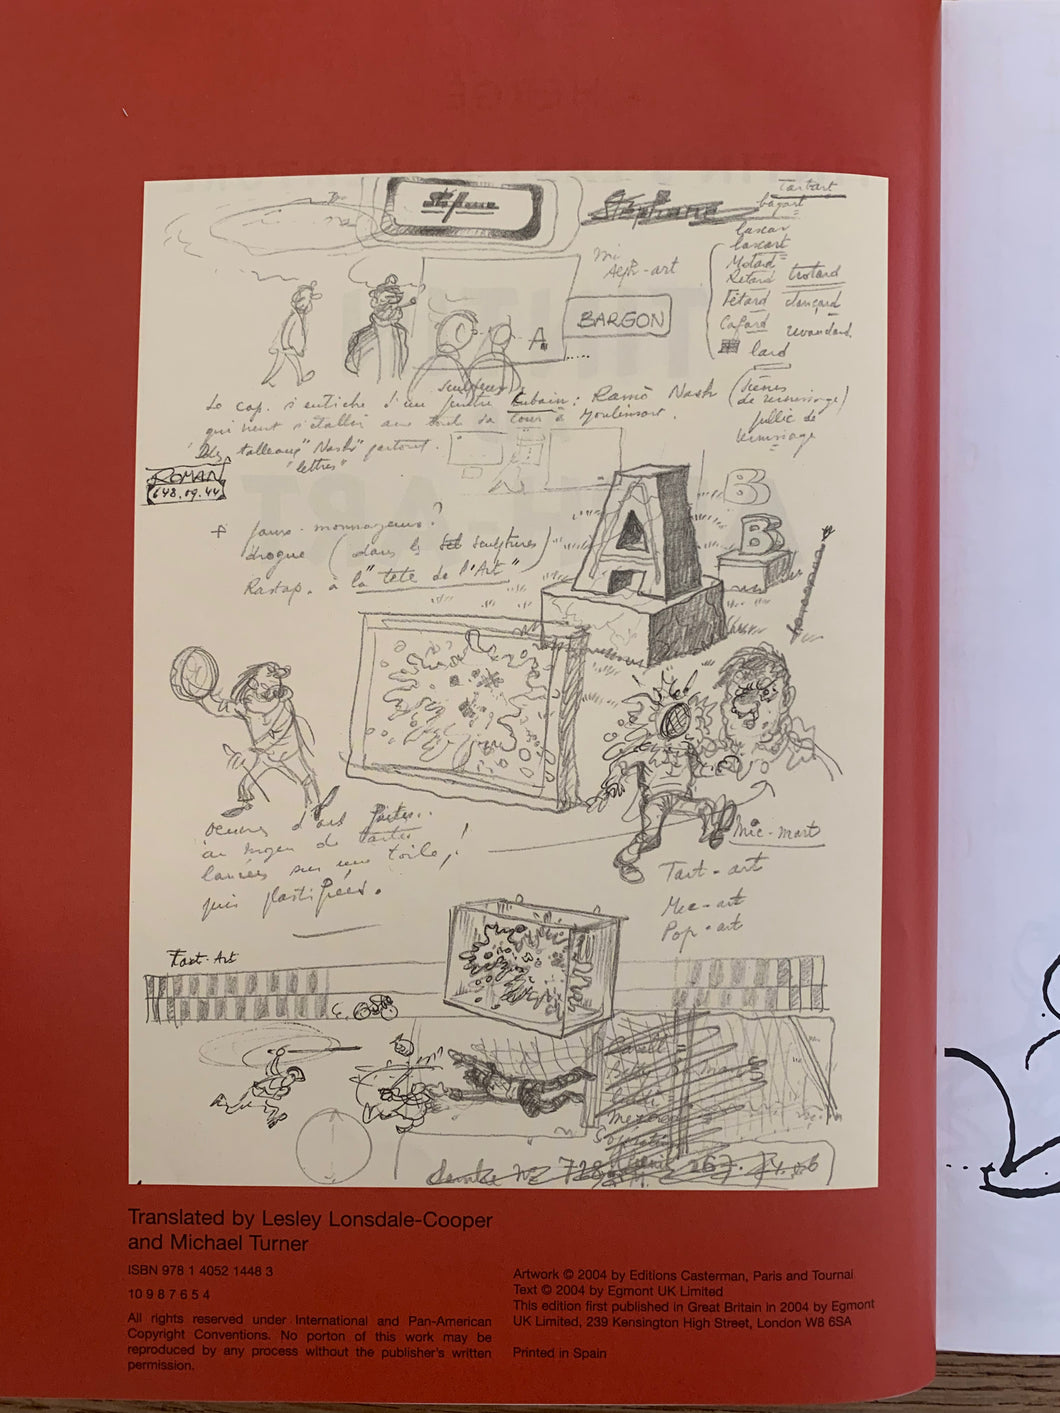 Stéphane
Tartart
bagart
lascar
lascart
Motard
Retard
trotard
Fêtard
Cafard
lard
Alph-art
BARGON
A
sculpteur
Le cap. s'entiche d'un peintre cubain : Ramò Nash
qui vient s'établir dans la tour à Moulinsart.
Des tableaux "Nash" partout.
"lettres"
(Scènes
de vernissage)
public de
vernissage
ROMAN
648.09.44
+ faux-monnayeurs?
drogue (dans les sculptures)
Rastap. à la "tête de l'Art"
A
B
B
oeuvres d'art faites..
au moyen de tartes
lancées sur une toile,
puis plastifiées.
!
Mic-mart
Tart-art
Mec-art
Pop-art
Tart-Art
Translated by Lesley Lonsdale-Cooper
and Michael Turner
ISBN 978 1 4052 1448 3
10 9 8 7 6 5 4
All rights reserved under International and Pan-American
Copyright Conventions. No porton of this work may be
reproduced by any process without the publisher's written
permission.
Artwork © 2004 by Editions Casterman, Paris and Tournai
Text © 2004 by Egmont UK Limited
This edition first published in Great Britain in 2004 by Egmont
UK Limited, 239 Kensington High Street, London W8 6SA
Printed in Spain